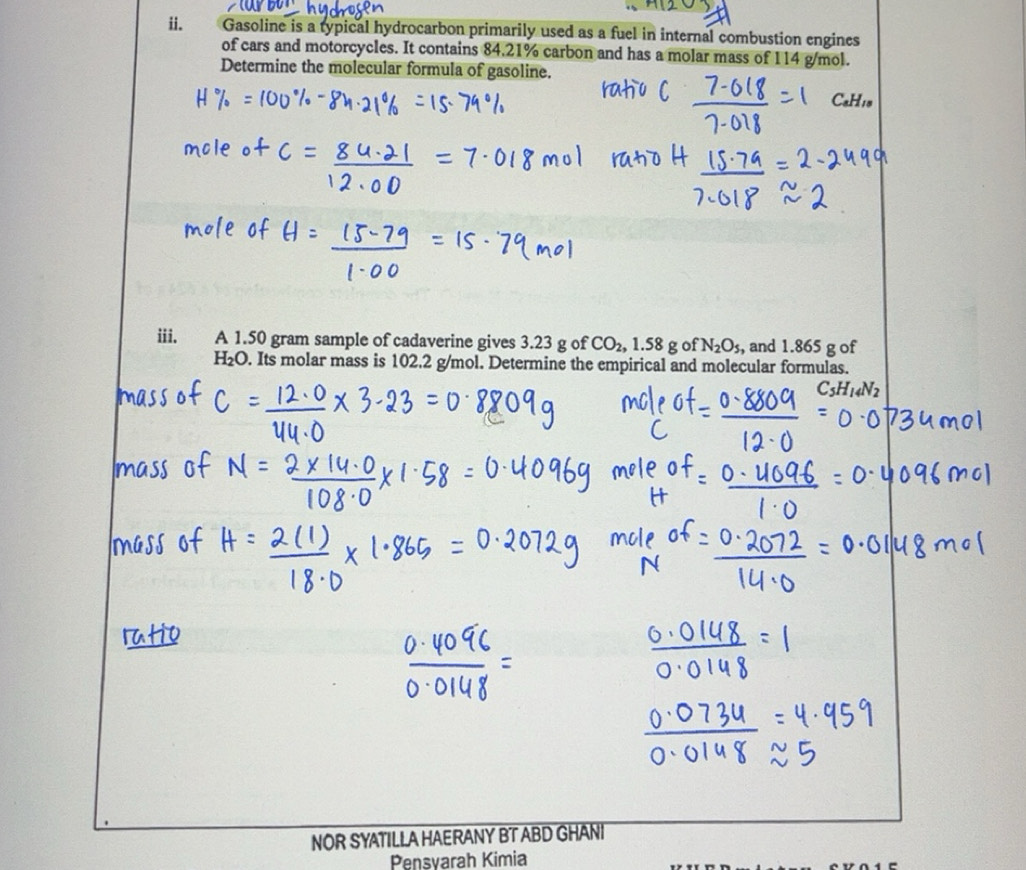 carbon hydrogen
ii. Gasoline is a typical hydrocarbon primarily used as a fuel in internal combustion engines
of cars and motorcycles. It contains 84.21% carbon and has a molar mass of 114 g/mol.
Determine the molecular formula of gasoline.
H% = 100% - 84.21% = 15.79%
ratio C 7.018/7.018 = 1 C₈H₁₈
mole of C = 84.21/12.00 = 7.018 mol
ratio H 15.79/7.018 = 2.2499
≈ 2
mole of H = 15.79/1.00 = 15.79 mol
iii. A 1.50 gram sample of cadaverine gives 3.23 g of CO₂, 1.58 g of N₂O₅, and 1.865 g of
H₂O. Its molar mass is 102.2 g/mol. Determine the empirical and molecular formulas.
C₅H₁₄N₂
mass of C = 12.0/44.0 × 3.23 = 0.8809g
mole of C = 0.8809/12.0 = 0.0734 mol
mass of N = 2×14.0/108.0 × 1.58 = 0.4096g
mole of H = 0.4096/1.0 = 0.4096 mol
mass of H = 2(1)/18.0 × 1.865 = 0.2072g
mole of N = 0.2072/14.0 = 0.0148 mol
ratio
0.4096/0.0148 =
0.0148/0.0148 = 1
0.0734/0.0148 = 4.959
≈ 5
NOR SYATILLA HAERANY BT ABD GHANI
Pensyarah Kimia